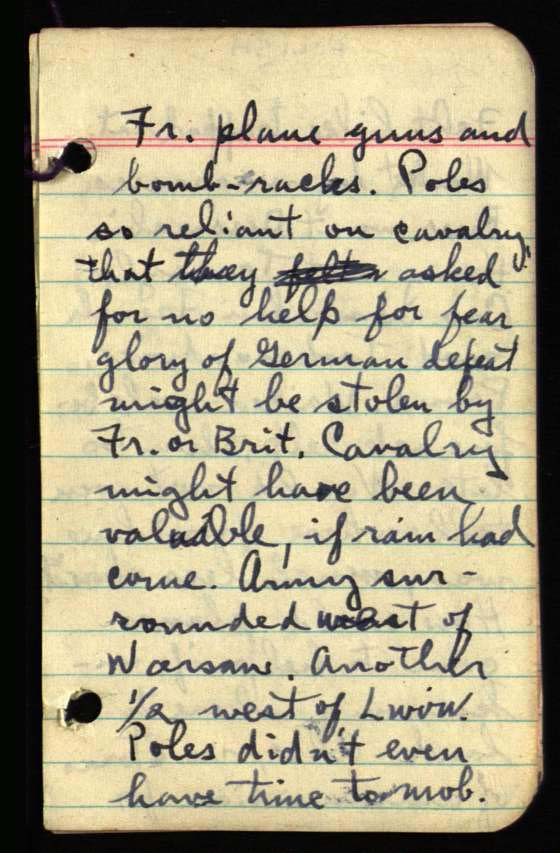 Fr. plane guns and
bomb-racks. Poles
so reliant on cavalry,
that they asked
for no help for fear
glory of German defeat
might be stolen by
Fr. or Brit. Cavalry
might have been
valuable, if rain had
come. Army sur-
rounded west of
Warsaw. Another
1/2 west of Lwow.
Poles didn't even
have time to mob.